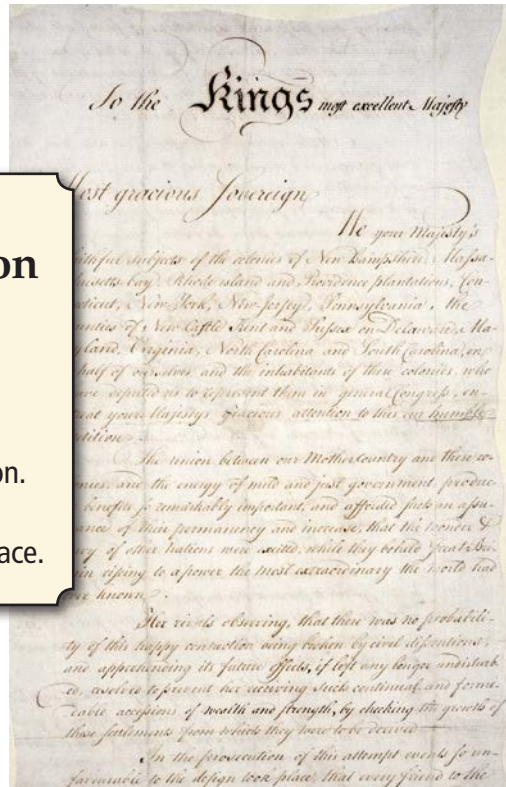 To the Kings most excellent Majesty
Most gracious Sovereign
We your Majesty's
faithful subjects of the colonies of New Hampshire, Massa-
chusetts bay, Rhode island and Providence plantations, Con-
necticut, New-York, New-Jersey, Pennsylvania, the
counties of New Castle Kent and Sussex on Delaware, Ma-
ryland, Virginia, North Carolina and South Carolina, on
behalf of ourselves and the inhabitants of these colonies, who
have deputed us to represent them in general Congress, en-
treat your Majestys gracious attention to this our humble
petition.
The union between our Mother Country and these co-
lonies, and the energy of mild and just government, produc-
benefits so remarkably important, and afforded such an assu-
rance of their permanency and increase, that the wonder &
envy of other Nations were excited, while they beheld Great Bri-
tain rising to a power the most extraordinary the world had
ever known.
Her rivals observing, that there was no probabili-
ty of this happy connection being broken by civil dissentions,
and apprehending its future effects, if left any longer undisturb-
ed, resolved to prevent her receiving such continual and formi-
dable accessions of wealth and strength, by checking the growth of
these settlements from which they were to be derived.
In the prosecution of this attempt events so un-
favourable to the design took place, that every friend to the
on
on.
ace.